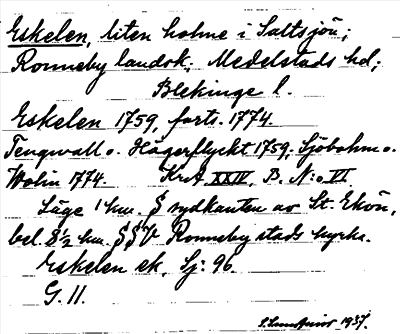 Eskelen, liten holme i Saltsjön;
Ronneby landsk; Medelstads hd;
Blekinge l.
Eskelen 1759, forts. 1774.
Tengwall o. Hägerflycht 1759; Sjöbohm o.
Wolin 1774. KrA XXIV, B. N:o VI.
Läge 1 km. S sydkanten av St. Ekön,
bel. 8½ km. SSV Ronneby stads kyrka.
Eskelen ek, Sj: 96.
G. 11.
1937.